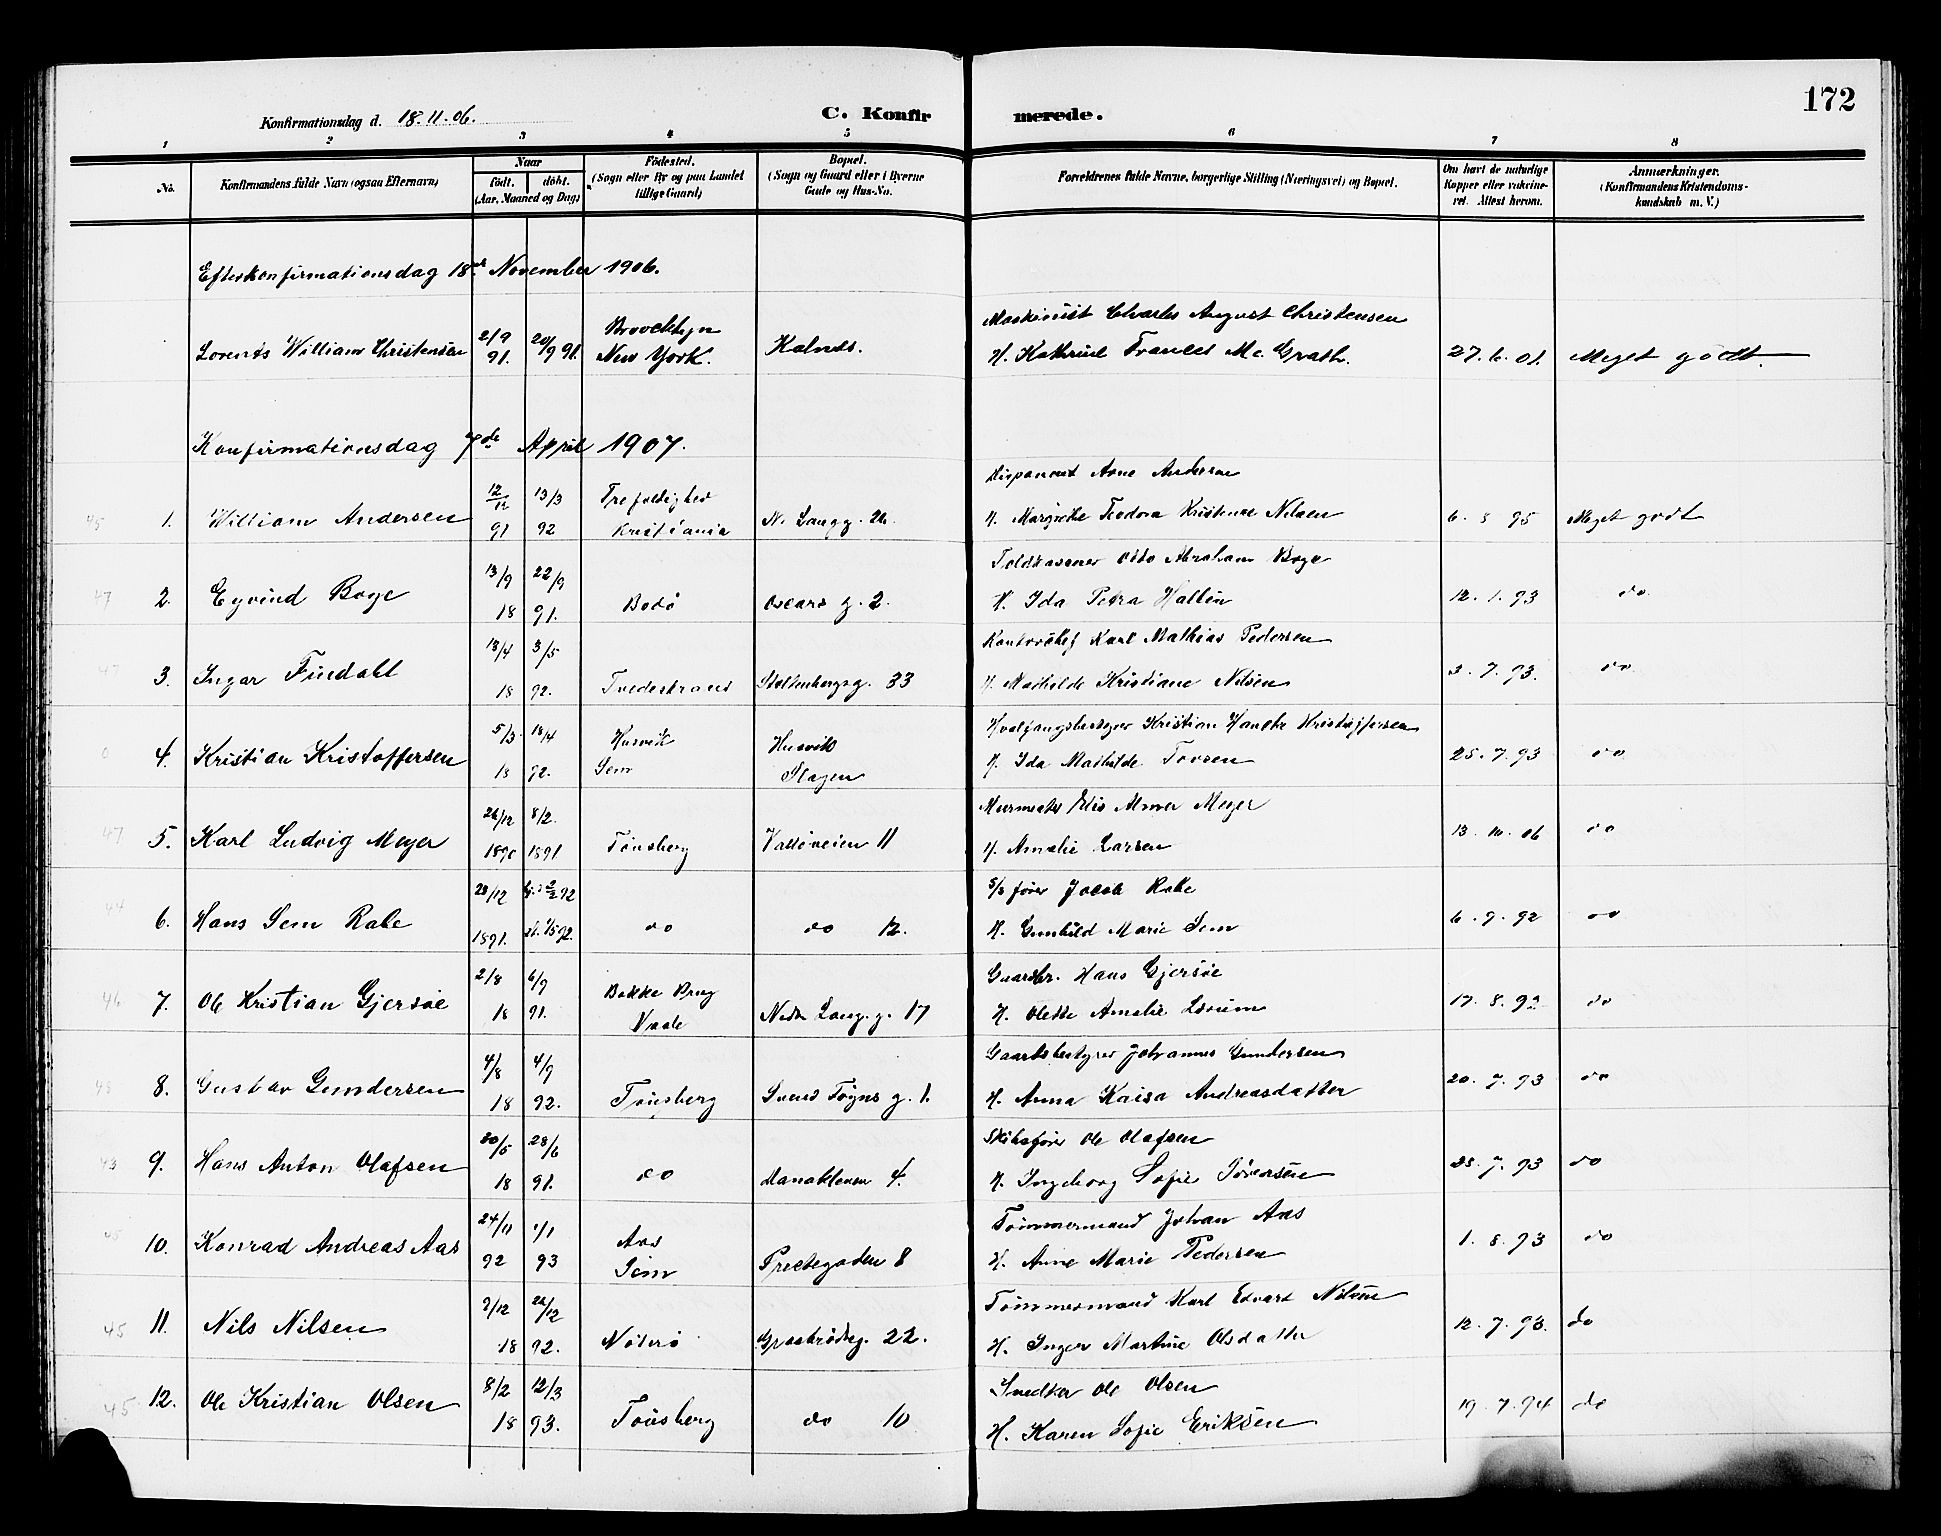 172
Konfirmationsdag d. 18.11.06. C. Konfirmerede.
1 2 3 4 5 6 7 8
No.
Konfirmandens fulde Navn (ogsaa Efternavn)
Naar
födt. döbt.
(Aar, Maaned og Dag)
Födested.
(Sogn eller By og paa Landet
tillige Gaard)
Bopæl.
(Sogn og Gaard eller i Byerne
Gade og Hus-No.
Forældrenes fulde Navne, borgerlige Stilling (Næringsvei) og Bopæl.
Om havt de naturlige
Kopper eller vakcine-
ret. Attest herom.
Anmærkninger.
(Konfirmandens Kristendoms-
kundskab m. V.)
Efterkonfirmationsdag 18de November 1906.
Lorents William Christensen 21/9 91. 20/9 91. Broocklyn New York. Kalnes. Maskinist Charles August Christensen
H. Kathrine Frances Mc. Grath. 27. 6. 01. Meget godt.
Konfirmationsdag 7de April 1907.
1. William Andersen 12/12 91 13/3 92 Trefoldighed Kristiania N. Langg. 26. Disponent Arne Andersen
H. Margrethe Teodora Kristense Nilsen 6. 5 95 Meget godt
2. Eyvind Boye 13/9 22/9 18 91. Bodö Oscars g. 2. Toldkaserer Otto Abraham Boye
H. Ida Petra Hallin 12. 1. 93 do
3. Ingar Findahl 13/4 3/5 18 92. Tvedestrand Stoltenbergsg. 33 Kontorchef Karl Mathias Pedersen
H. Mathilde Kristiane Nilsen 3. 7. 93. do
4. Kristian Kristoffersen 5/3. 18/4 18 92. Husvik Sem Husvik Slagen Hvalfangstbestyrer Kristian Hancke Kristoffersen
H. Ida Mathilde Tovsen 25. 7. 93 do
5. Karl Ludvig Meyer 26/12 1890 8/2. 1891 Tönsberg Vallöveien 11 Murmester Elis Almer Meyer
H. Amalie Larsen 13. 10. 06 do
6. Hans Sem Rabe 28/12 1891. do do 12. S/S förer Jacob Rabe
H. Gunhild Marie Sem 6. 9. 92 do
7. Ole Kristian Gjersöe 2/8 6/9 18 91. Bakke Vaale Nedr Lang. g. 17 Gaardbr. Hans Gjersöe
H. Olette Amalie 17. 8. 92 do
8. Gustav Gundersen 4/8 4/9 18 92. Tönsberg Svend Föyns g. 1. Gaardsbestyrer Johannes Gundersen
H. Anna Kaisa Andreasdatter 20. 7. 93 do
9. Hans Anton Olafsen 30/5 28/6 18 91. do 4. Skibsförer Ole Olafsen
H. Ingeborg Sofie Iversen 28. 7. 93 do
10. Konrad Andreas Aas 24/11 92 1/1 93 Aas Sem Prestegaden 8 Tömmermand Johan Aas
H. Anne Marie Pedersen 1. 8. 93 do
11. Nils Nilsen 9/12 26/12 18 92. Nöterö 22. Tömmermand Karl Edvard Nilsen
H. Inger Martine Olsdatter 12. 7. 93. do
12. Ole Kristian Olsen 8/2 12/3 18 93. Tönsberg do 10 Snedker Ole Olsen
H. Karen Sofie Eriksen 19. 7. 94 do